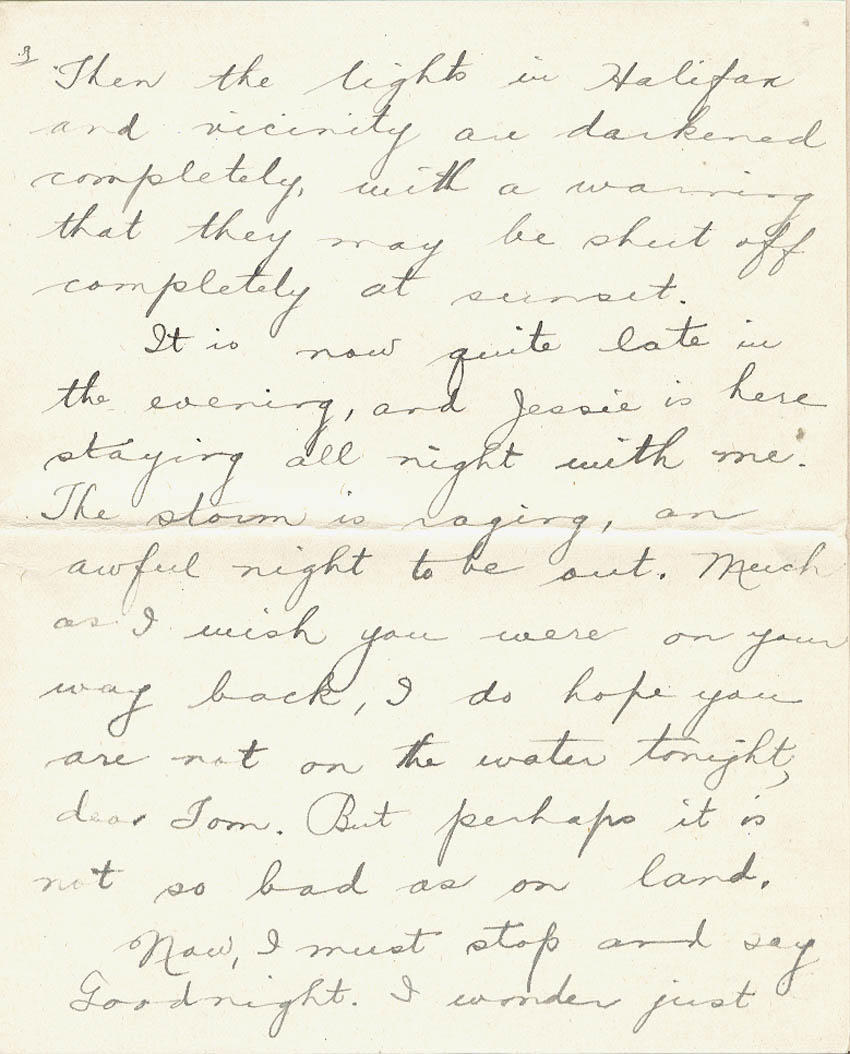 Then the lights in Halifax
and vicinity are darkened
completely, with a warning
that they may be shut off
completely at sunset.
It is now quite late in
the evening, and Jessie is here
staying all night with me.
The storm is raging, an
awful night to be out. Much
as I wish you were on your
way back, I do hope you
are not on the water tonight,
dear Tom. But perhaps it is
not so bad as on land.
Now, I must stop and say
Goodnight. I wonder just